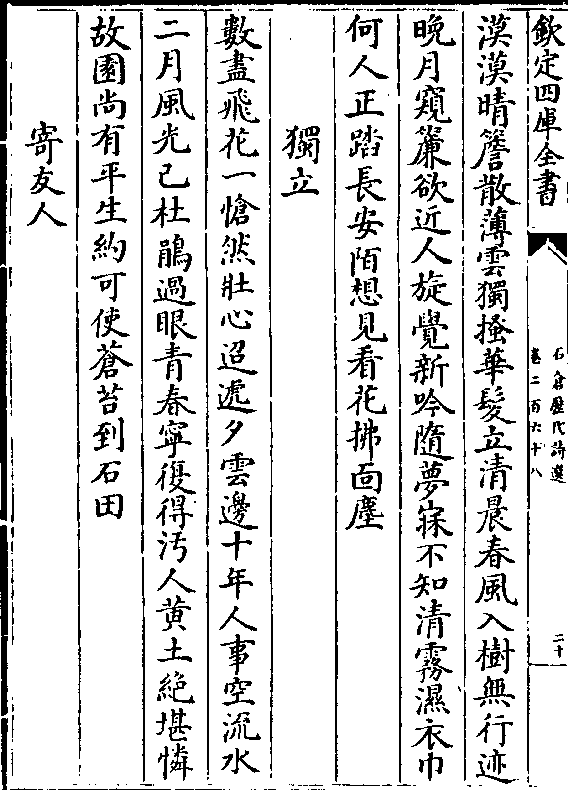 欽定四庫全書
石倉歷代詩選
卷二百六十八
二十
漠漠晴簷散薄雲獨搔華髪立清晨春風入樹無行迹
晚月窺簾欲近人旋覺新吟隨夢寐不知清霧濕衣巾
何人正踏長安陌想見看花拂面塵
獨立
數盡飛花一愴然壯心迢遞夕雲邊十年人事空流水
二月風光已杜鵑過眼青春寧復得汚人黄土絶堪憐
故園尚有平生約可使蒼苔到石田
寄友人